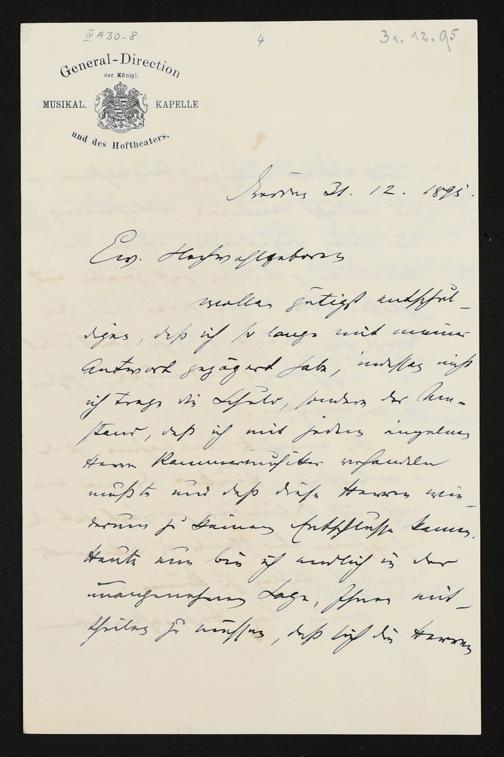 IV A30-8
4
31.12.95
General-Direction
der Königl.
MUSIKAL. KAPELLE
und des Hoftheaters.
31. 12. 1895.
Ew. Hochwohlgeboren
wollen gütigst entschul-
digen, daß ich so lange mit meiner
Antwort gezögert habe, indessen nicht
ich trage die Schuld, sondern der Um-
stand, daß ich mit jedem einzelnen
Herrn Kammermusiker verhandeln
mußte und daß diese Herren wie-
derum zu keinem Entschlusse kamen.
Heute nun bin ich endlich in der
unangenehmen Lage, Ihnen mit-
theilen zu müssen, daß sich die Herren